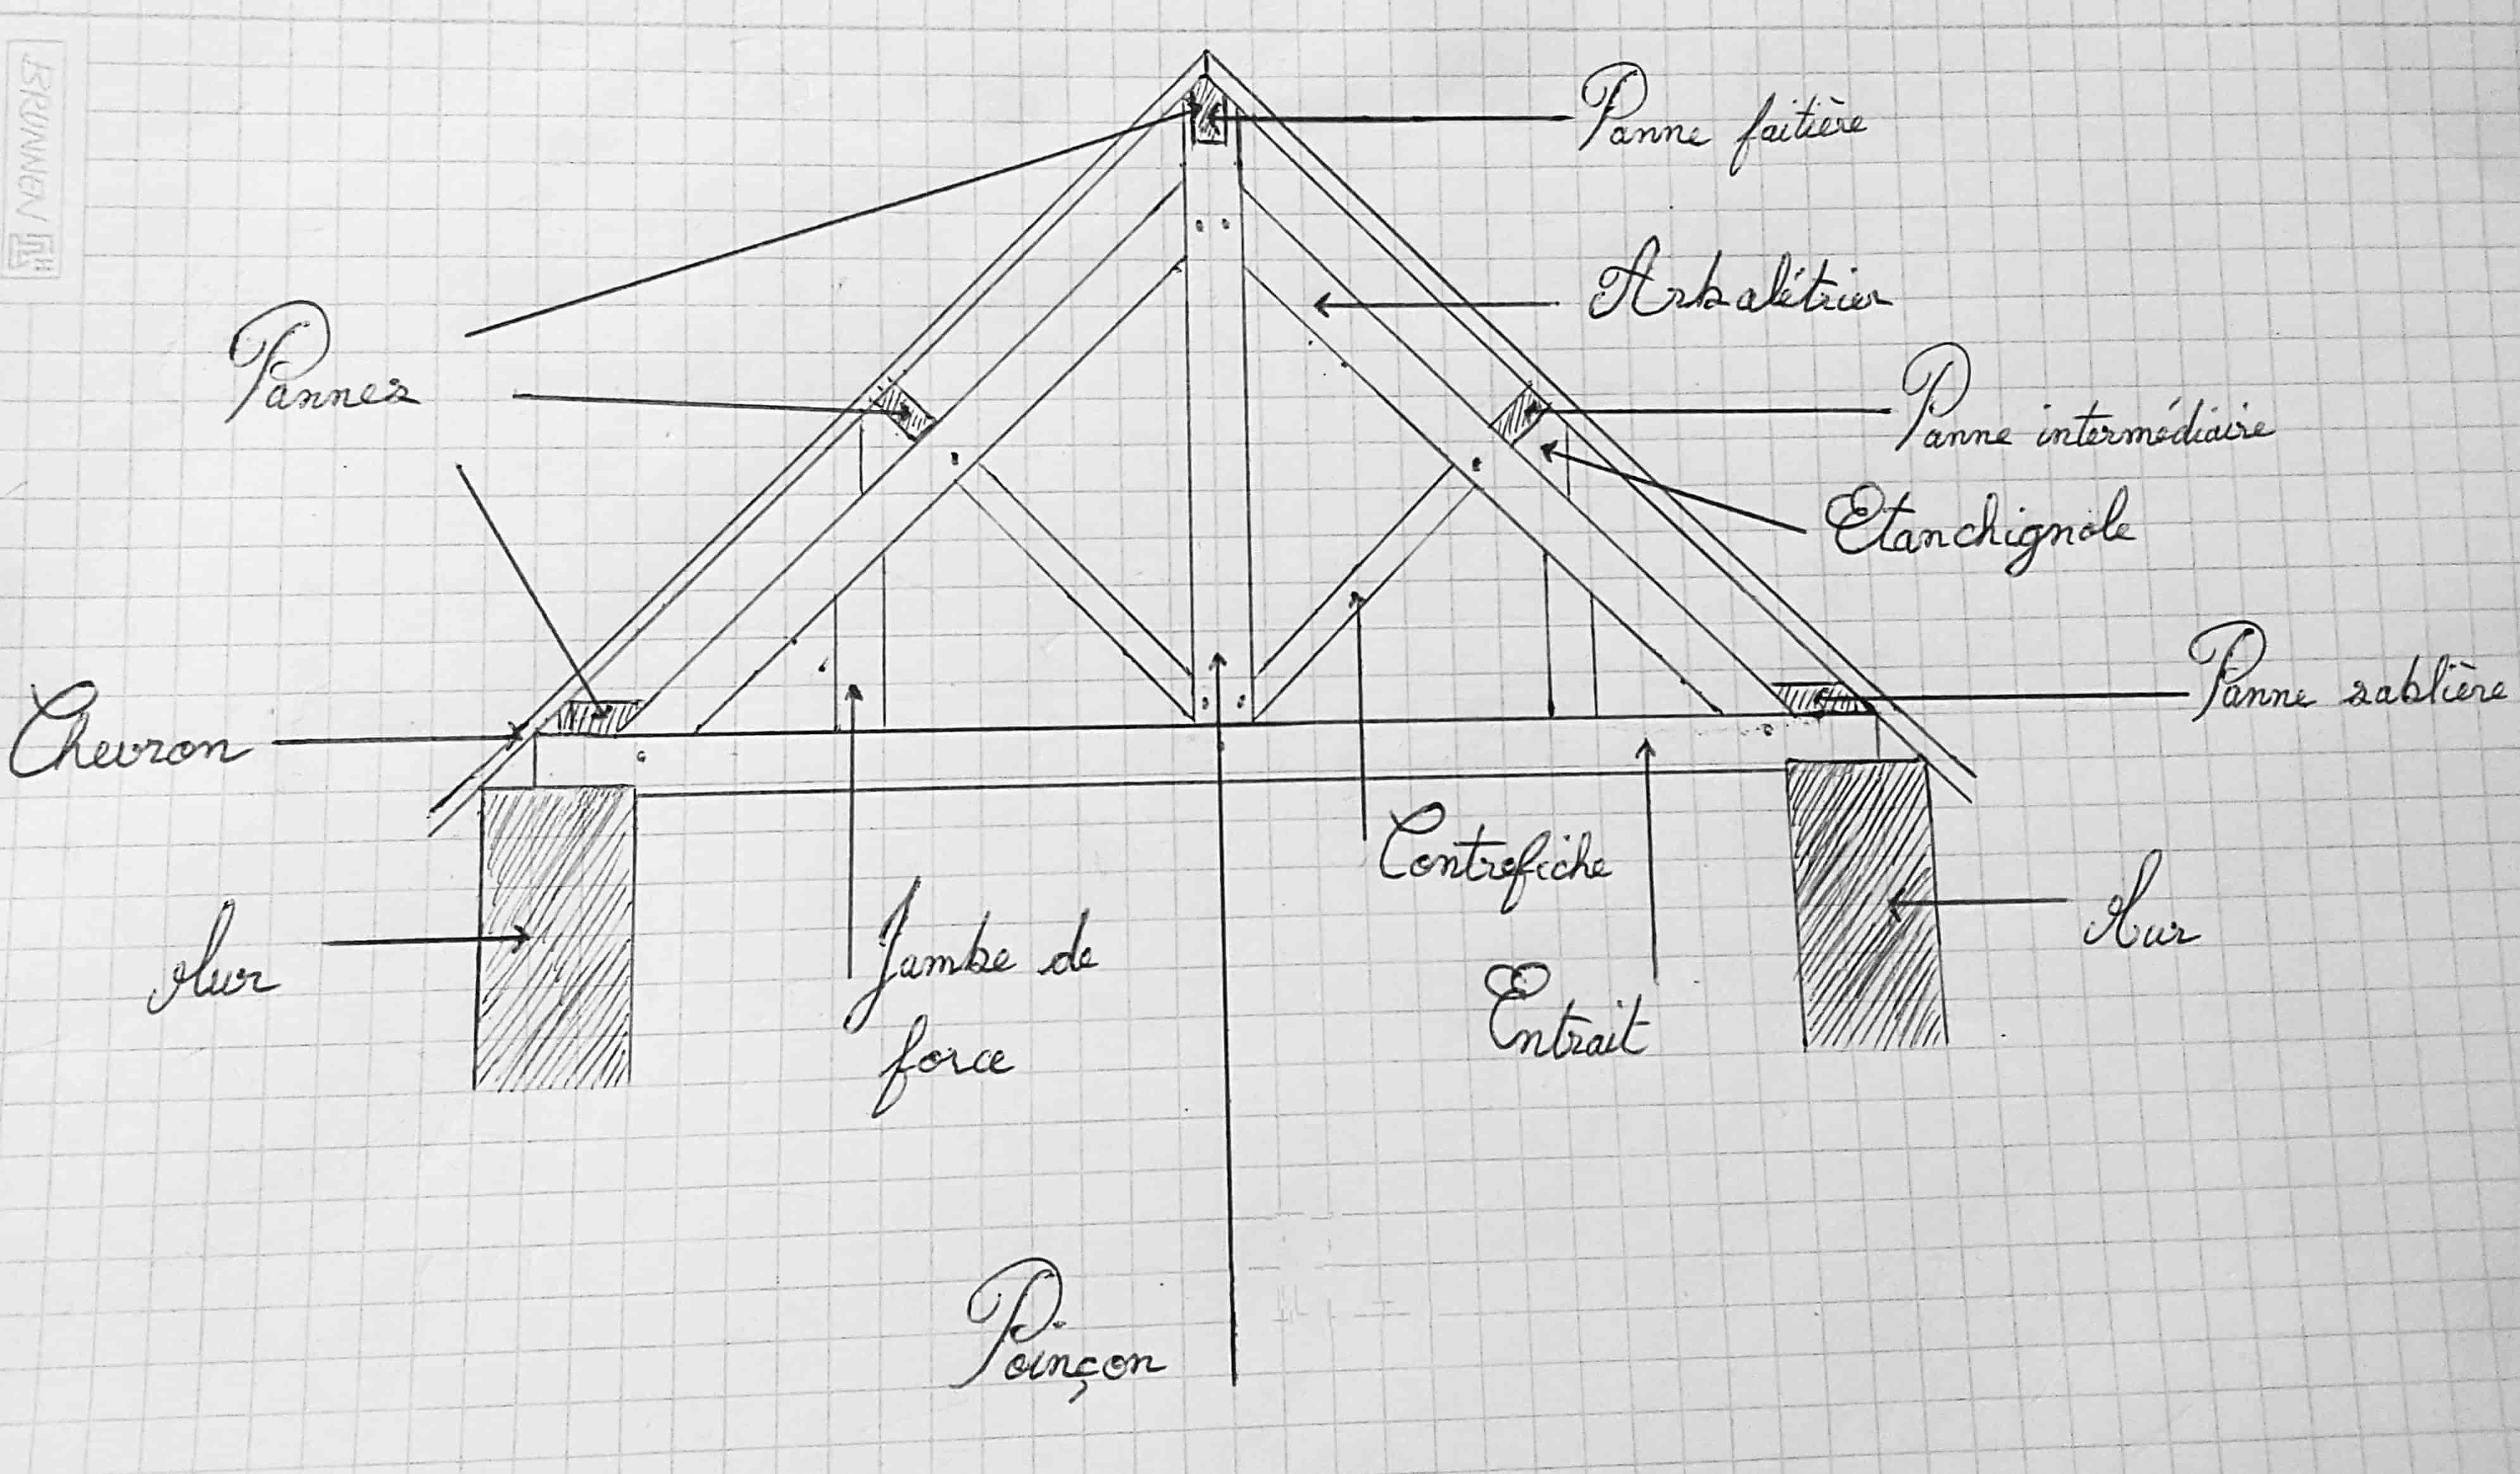 BRUNNEN
Panne faitière
Arbalétrier
Pannes
Panne intermédiaire
Etanchignole
Panne sablière
Chevron
Contrefiche
Mur
Jambe de
force
Entrait
Mur
Poinçon